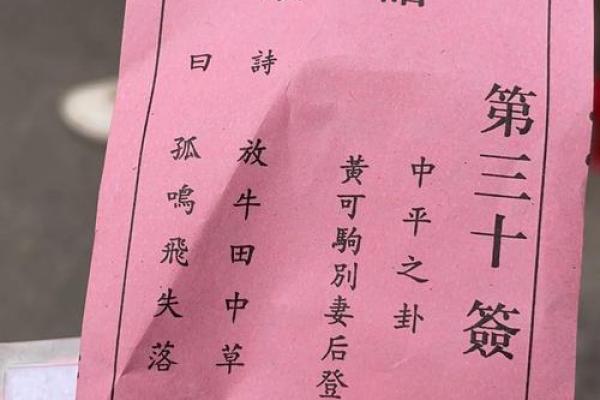 第三十簽
中平之卦
黃可駒別妻后登
詩曰
放牛田中草
孤鳴飛失落